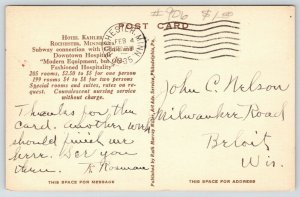 #906 $1.00
POST CARD
HOTEL KAHLER
ROCHESTER, MINNESOTA
Subway connection with Clinic and
Downtown Hospitals
"Modern Equipment, but Old
Fashioned Hospitality"
205 rooms, $2.50 to $5 for one person
199 rooms $4 to $ for one person
Special rooms and suites, rates on re-
quest. Convalescent nursing service
without charge.
ROCHESTER MINN
FEB 4
1935
Thanks for the
card. another week
should finish me
here. See you
then. Norman
John C. Nelson
Milwaukee Road
Beloit
Wis.
THIS SPACE FOR MESSAGE
THIS SPACE FOR ADDRESS